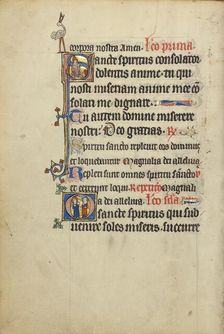 corpora nostra Amen. Lco prima
Sancte spiritus consolator
dolentis anime tu qui
nosti miseriam anime mee con
solari me dignare
Tu autem domine miserere
nostri. Deo gracias. R
Spiritu sancto repleti sunt omnes
et loquebantur Magnalia dei alleluia
Repleti sunt omnes spiritu sancto
et ceperunt loqui. Repetitio Magnalia
dei alleluia. Lco scda
Sancte spiritus qui sub
venire soles miseris succurre